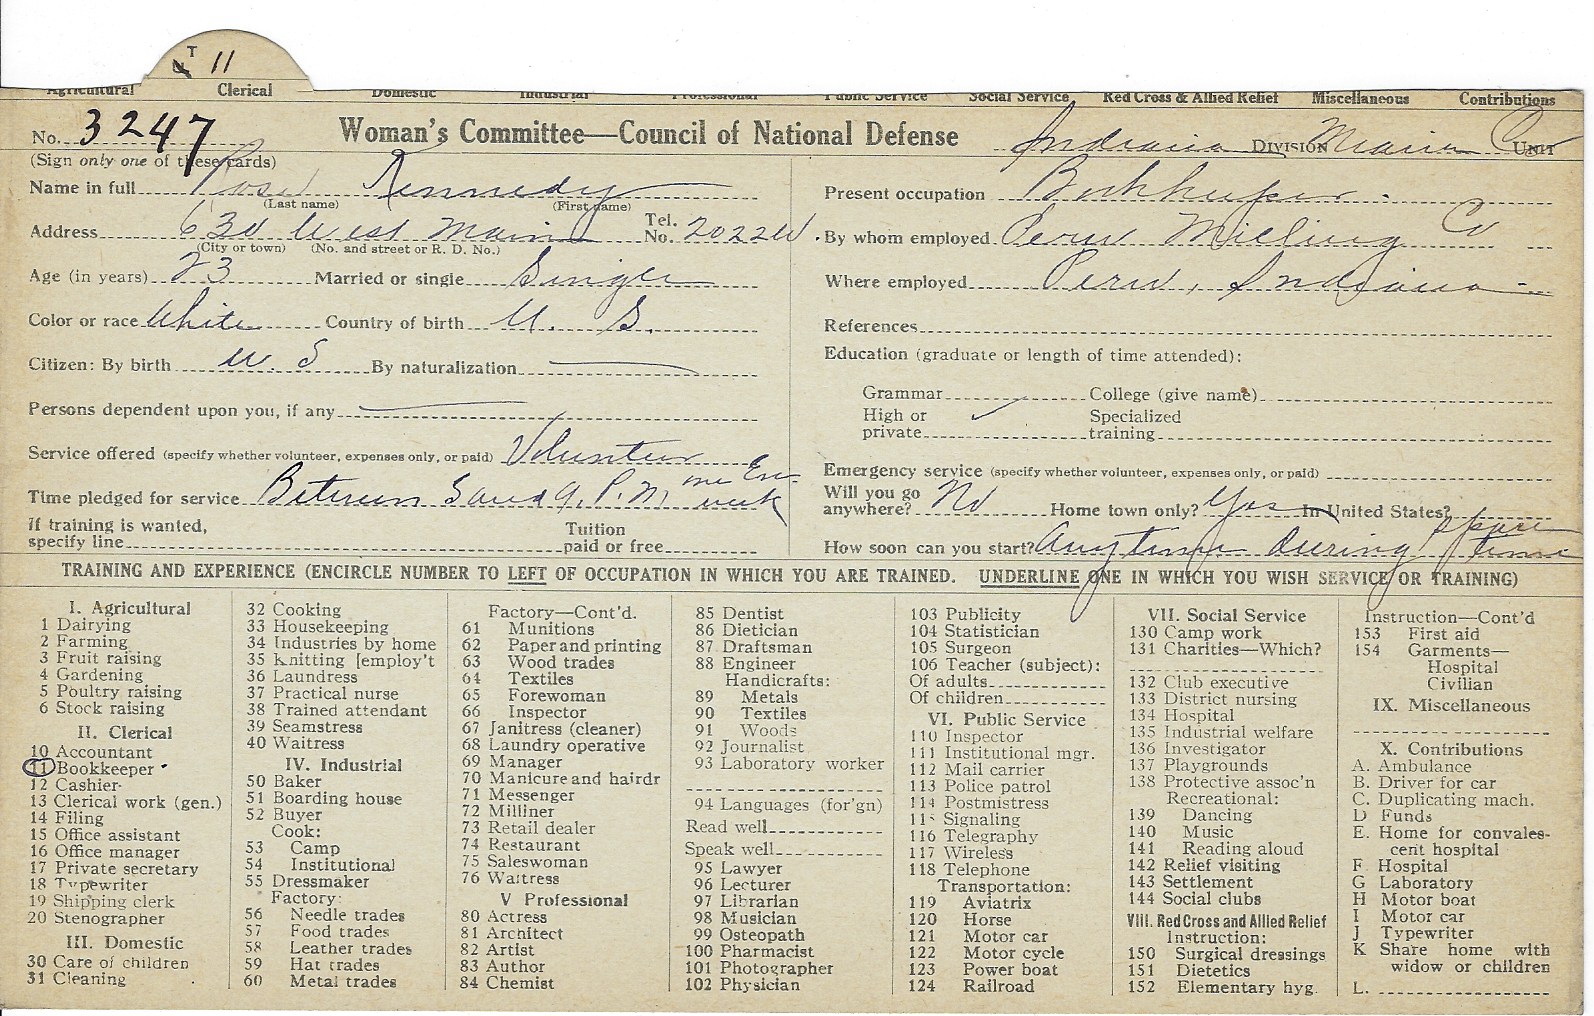 T 11
Agricultural Clerical Domestic Industrial Professional Public Service Social Service Red Cross & Allied Relief Miscellaneous Contributions
No. 3247 Woman's Committee—Council of National Defense Indiana DIVISION UNIT
(Sign only one of these cards)
Name in full Rose Kennedy
(Last name) (First name)
Address 630 West Main Tel. No. 2022W.
(City or town) (No. and street or R. D. No.)
Age (in years) 23 Married or single Single
Color or race White Country of birth U. S.
Citizen: By birth U. S By naturalization
Persons dependent upon you, if any
Service offered (specify whether volunteer, expenses only, or paid) Volunteer
Time pledged for service Between 5 and 9. P. M. one Eve- week
If training is wanted,
specify line Tuition paid or free
Present occupation Bookkeeper.
By whom employed Peru Milling Co
Where employed Peru, Indiana
References
Education (graduate or length of time attended):
Grammar College (give name)
High or private ✓ Specialized training
Emergency service (specify whether volunteer, expenses only, or paid)
Will you go anywhere? No Home town only? Yes In United States?
How soon can you start? Anytime during spare time
TRAINING AND EXPERIENCE (ENCIRCLE NUMBER TO LEFT OF OCCUPATION IN WHICH YOU ARE TRAINED. UNDERLINE ONE IN WHICH YOU WISH SERVICE OR TRAINING)
I. Agricultural
1 Dairying
2 Farming
3 Fruit raising
4 Gardening
5 Poultry raising
6 Stock raising
II. Clerical
10 Accountant
11 Bookkeeper
12 Cashier
13 Clerical work (gen.)
14 Filing
15 Office assistant
16 Office manager
17 Private secretary
18 Typewriter
19 Shipping clerk
20 Stenographer
III. Domestic
30 Care of children
31 Cleaning
32 Cooking
33 Housekeeping
34 Industries by home
35 Knitting [employ't
36 Laundress
37 Practical nurse
38 Trained attendant
39 Seamstress
40 Waitress
IV. Industrial
50 Baker
51 Boarding house
52 Buyer
Cook:
53 Camp
54 Institutional
55 Dressmaker
Factory:
56 Needle trades
57 Food trades
58 Leather trades
59 Hat trades
60 Metal trades
Factory—Cont'd.
61 Munitions
62 Paper and printing
63 Wood trades
64 Textiles
65 Forewoman
66 Inspector
67 Janitress (cleaner)
68 Laundry operative
69 Manager
70 Manicure and hairdr
71 Messenger
72 Milliner
73 Retail dealer
74 Restaurant
75 Saleswoman
76 Waitress
V Professional
80 Actress
81 Architect
82 Artist
83 Author
84 Chemist
85 Dentist
86 Dietician
87 Draftsman
88 Engineer
Handicrafts:
89 Metals
90 Textiles
91 Woods
92 Journalist
93 Laboratory worker
94 Languages (for'gn)
Read well
Speak well
95 Lawyer
96 Lecturer
97 Librarian
98 Musician
99 Osteopath
100 Pharmacist
101 Photographer
102 Physician
103 Publicity
104 Statistician
105 Surgeon
106 Teacher (subject):
Of adults
Of children
VI. Public Service
110 Inspector
111 Institutional mgr.
112 Mail carrier
113 Police patrol
114 Postmistress
115 Signaling
116 Telegraphy
117 Wireless
118 Telephone
Transportation:
119 Aviatrix
120 Horse
121 Motor car
122 Motor cycle
123 Power boat
124 Railroad
VII. Social Service
130 Camp work
131 Charities—Which?
132 Club executive
133 District nursing
134 Hospital
135 Industrial welfare
136 Investigator
137 Playgrounds
138 Protective assoc'n
Recreational:
139 Dancing
140 Music
141 Reading aloud
142 Relief visiting
143 Settlement
144 Social clubs
VIII. Red Cross and Allied Relief
Instruction:
150 Surgical dressings
151 Dietetics
152 Elementary hyg.
Instruction—Cont'd
153 First aid
154 Garments—
Hospital
Civilian
IX. Miscellaneous
X. Contributions
A. Ambulance
B. Driver for car
C. Duplicating mach.
D Funds
E. Home for convales-
cent hospital
F. Hospital
G Laboratory
H Motor boat
I Motor car
J Typewriter
K Share home with
widow or children
L.